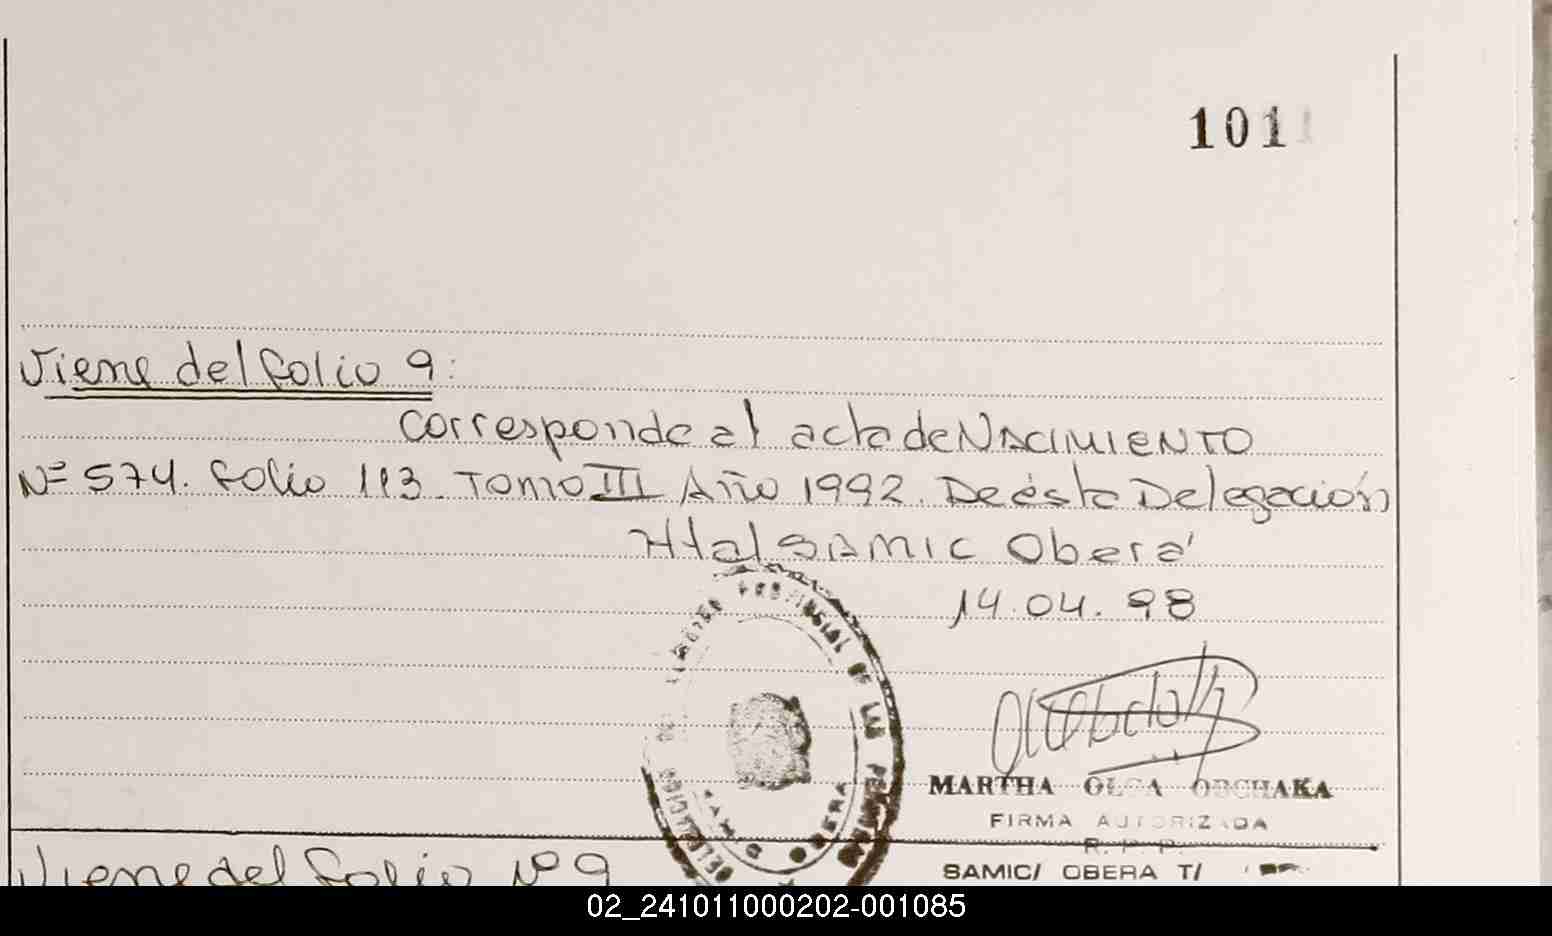 101
Viene del folio 9:
Corresponde al acta de NACIMIENTO
Nº 574. folio 113. Tomo III Año 1992. De ésta Delegación
Htal SAMIC Oberá
14.04.98
PROVINCIAL DE LAS PERSONAS
OBERA
MARTHA OLGA OBCHAKA
FIRMA AUTORIZADA
R. P. P.
SAMIC/ OBERA T/
Viene del folio Nº 9
02_241011000202-001085